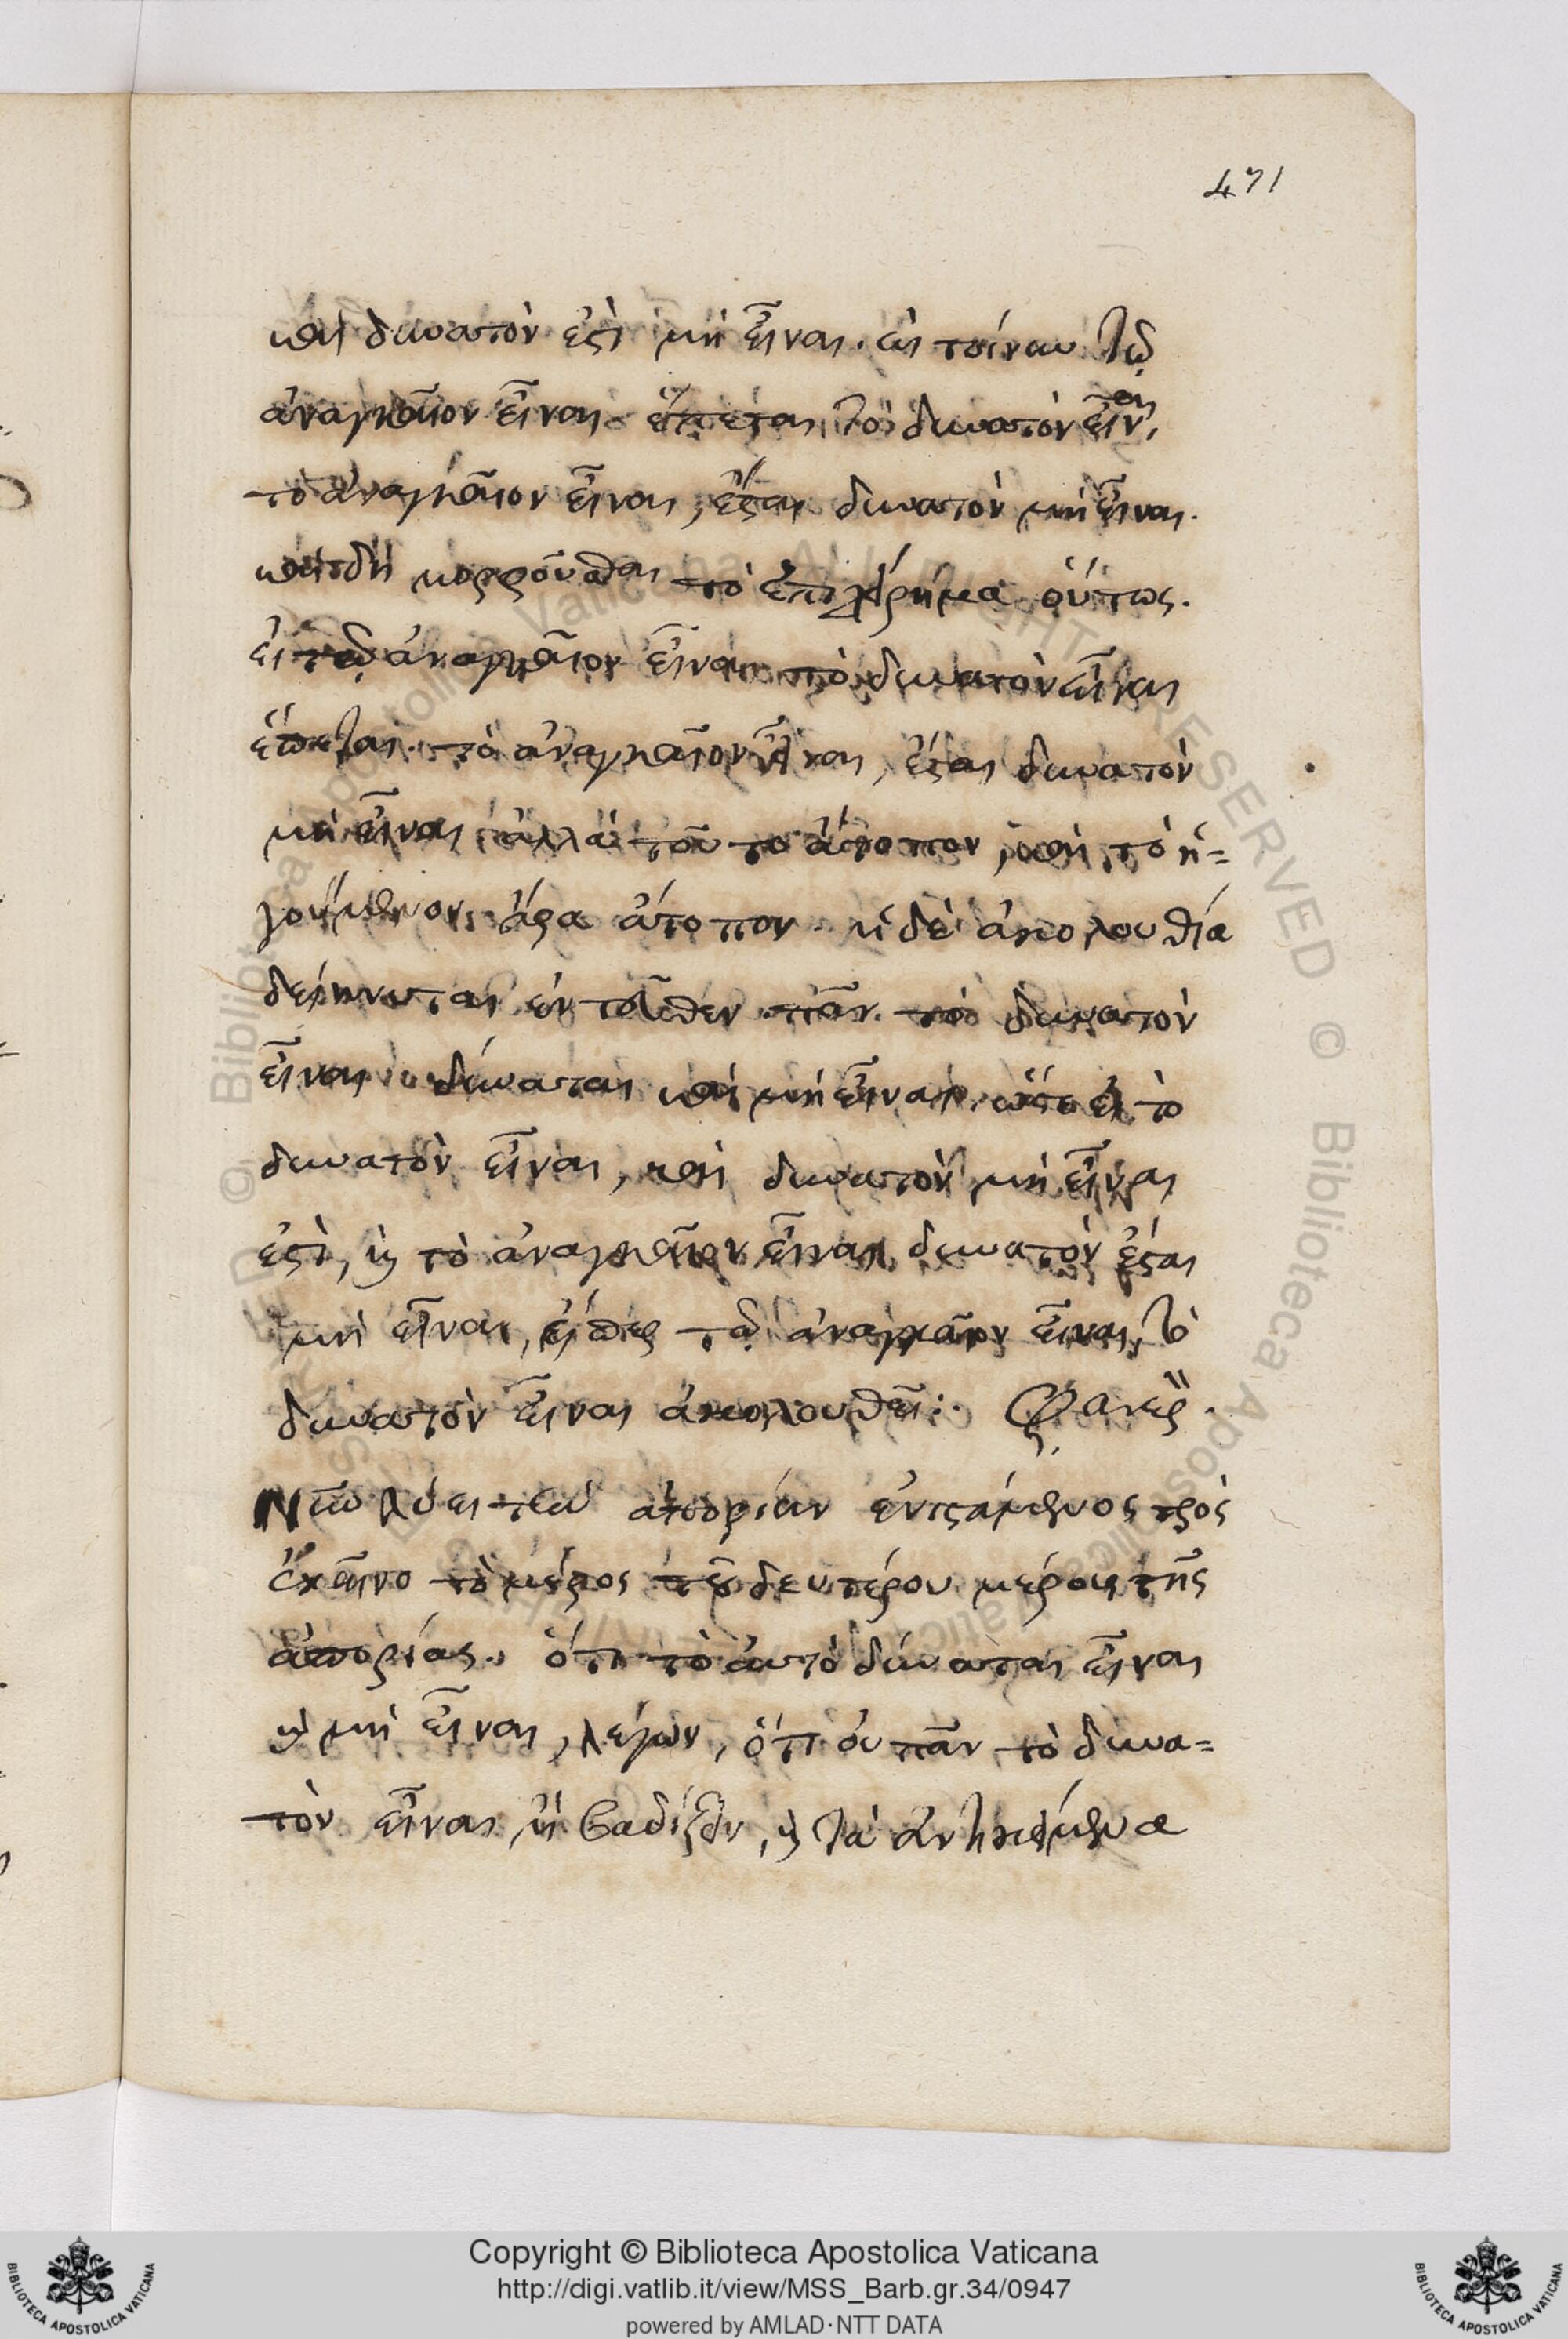 471
καὶ δυνατὸν ἐστὶ μὴ εἶναι. εἰ τοίνυν τῷ
ἀναγκαῖον εἶναι ἕπεται τὸ δυνατὸν εἶναι,
τὸ ἀναγκαῖον εἶναι, ἔσται δυνατὸν μὴ εἶναι.
καὶ δὴ μορφοῦσθαι τὸ ἐπιχείρημα οὕτως.
εἰ τῷ ἀναγκαῖον εἶναι τὸ δυνατὸν εἶναι
ἕπεται. τὸ ἀναγκαῖον εἶναι, ἔσται δυνατὸν
μὴ εἶναι ἀλλὰ τοῦτο ἄτοπον, καὶ τὸ ἡ=
γούμενον ἄρα ἄτοπον. ἡ δὲ ἀκολουθία
δείκνυται ἐντεῦθεν πᾶν τὸ δυνατὸν
εἶναι δύναται καὶ μὴ εἶναι, ὥστε εἰ τὸ
δυνατὸν εἶναι, καὶ δυνατὸν μὴ εἶναι
ἐστὶ, καὶ τὸ ἀναγκαῖον εἶναι δυνατὸν ἔσται
μὴ εἶναι, εἴπερ τῷ ἀναγκαῖον εἶναι, τὸ
δυνατὸν εἶναι ἀκολουθεῖ:. Φανερ.
Νῦν λύει τὴν ἀπορίαν ἐνιστάμενος πρὸς
ἐκεῖνο τὸ μέρος τοῦ δευτέρου μέρους τῆς
ἀπορίας. ὅτι τὸ αὐτὸ δύναται εἶναι
καὶ μὴ εἶναι, λέγων, ὅτι οὐ πᾶν τὸ δυνα=
τὸν εἶναι, ἢ βαδίζειν, καὶ τὰ ἀντικείμενα
Copyright © Biblioteca Apostolica Vaticana
http://digi.vatlib.it/view/MSS_Barb.gr.34/0947
powered by AMLAD·NTT DATA